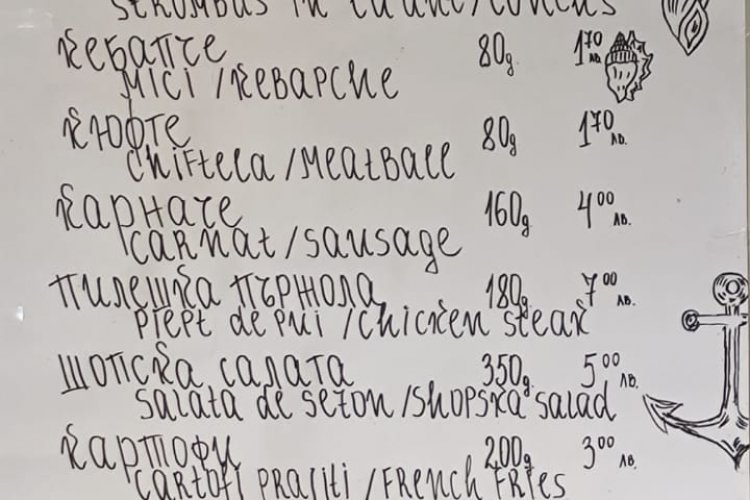 strombus in ... / ...
Кебапче 80g 1 70 лв.
Mici / Kebapche
Кюфте 80g 1 70 лв.
Chiftela / Meatball
Карначе 160g 4 00 лв.
Carnat / Sausage
Пилешка пържола 180g 7 00 лв.
Piept de pui / Chicken steak
Шопска салата 350g 5 00 лв.
Salata de sezon / Shopska salad
Картофи 200g 3 00 лв.
Cartofi prajiti / French fries